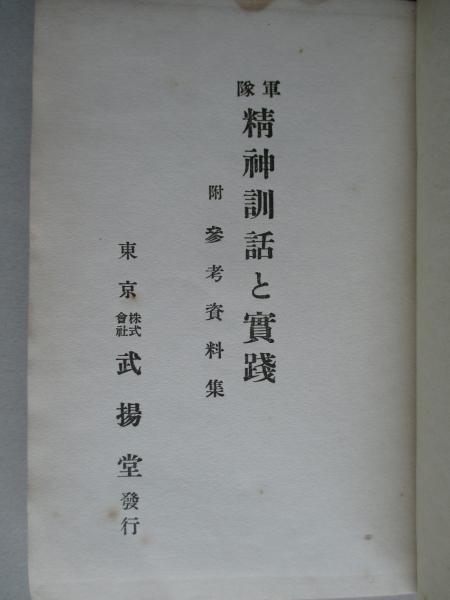 軍隊精神訓話と實踐
附參考資料集
東京株式會社武揚堂發行